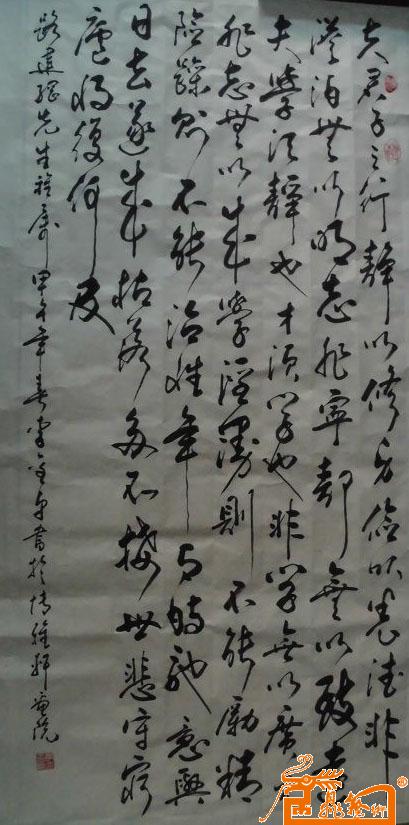 夫君子之行静以修身俭以养德非
澹泊无以明志非宁静无以致远
夫学须静也才须学也非学无以广才
非志无以成学淫慢则不能励精
险躁则不能治性年与时驰意与
日去遂成枯落多不接世悲守穷
庐将复何及
先生雅属甲午年春书於